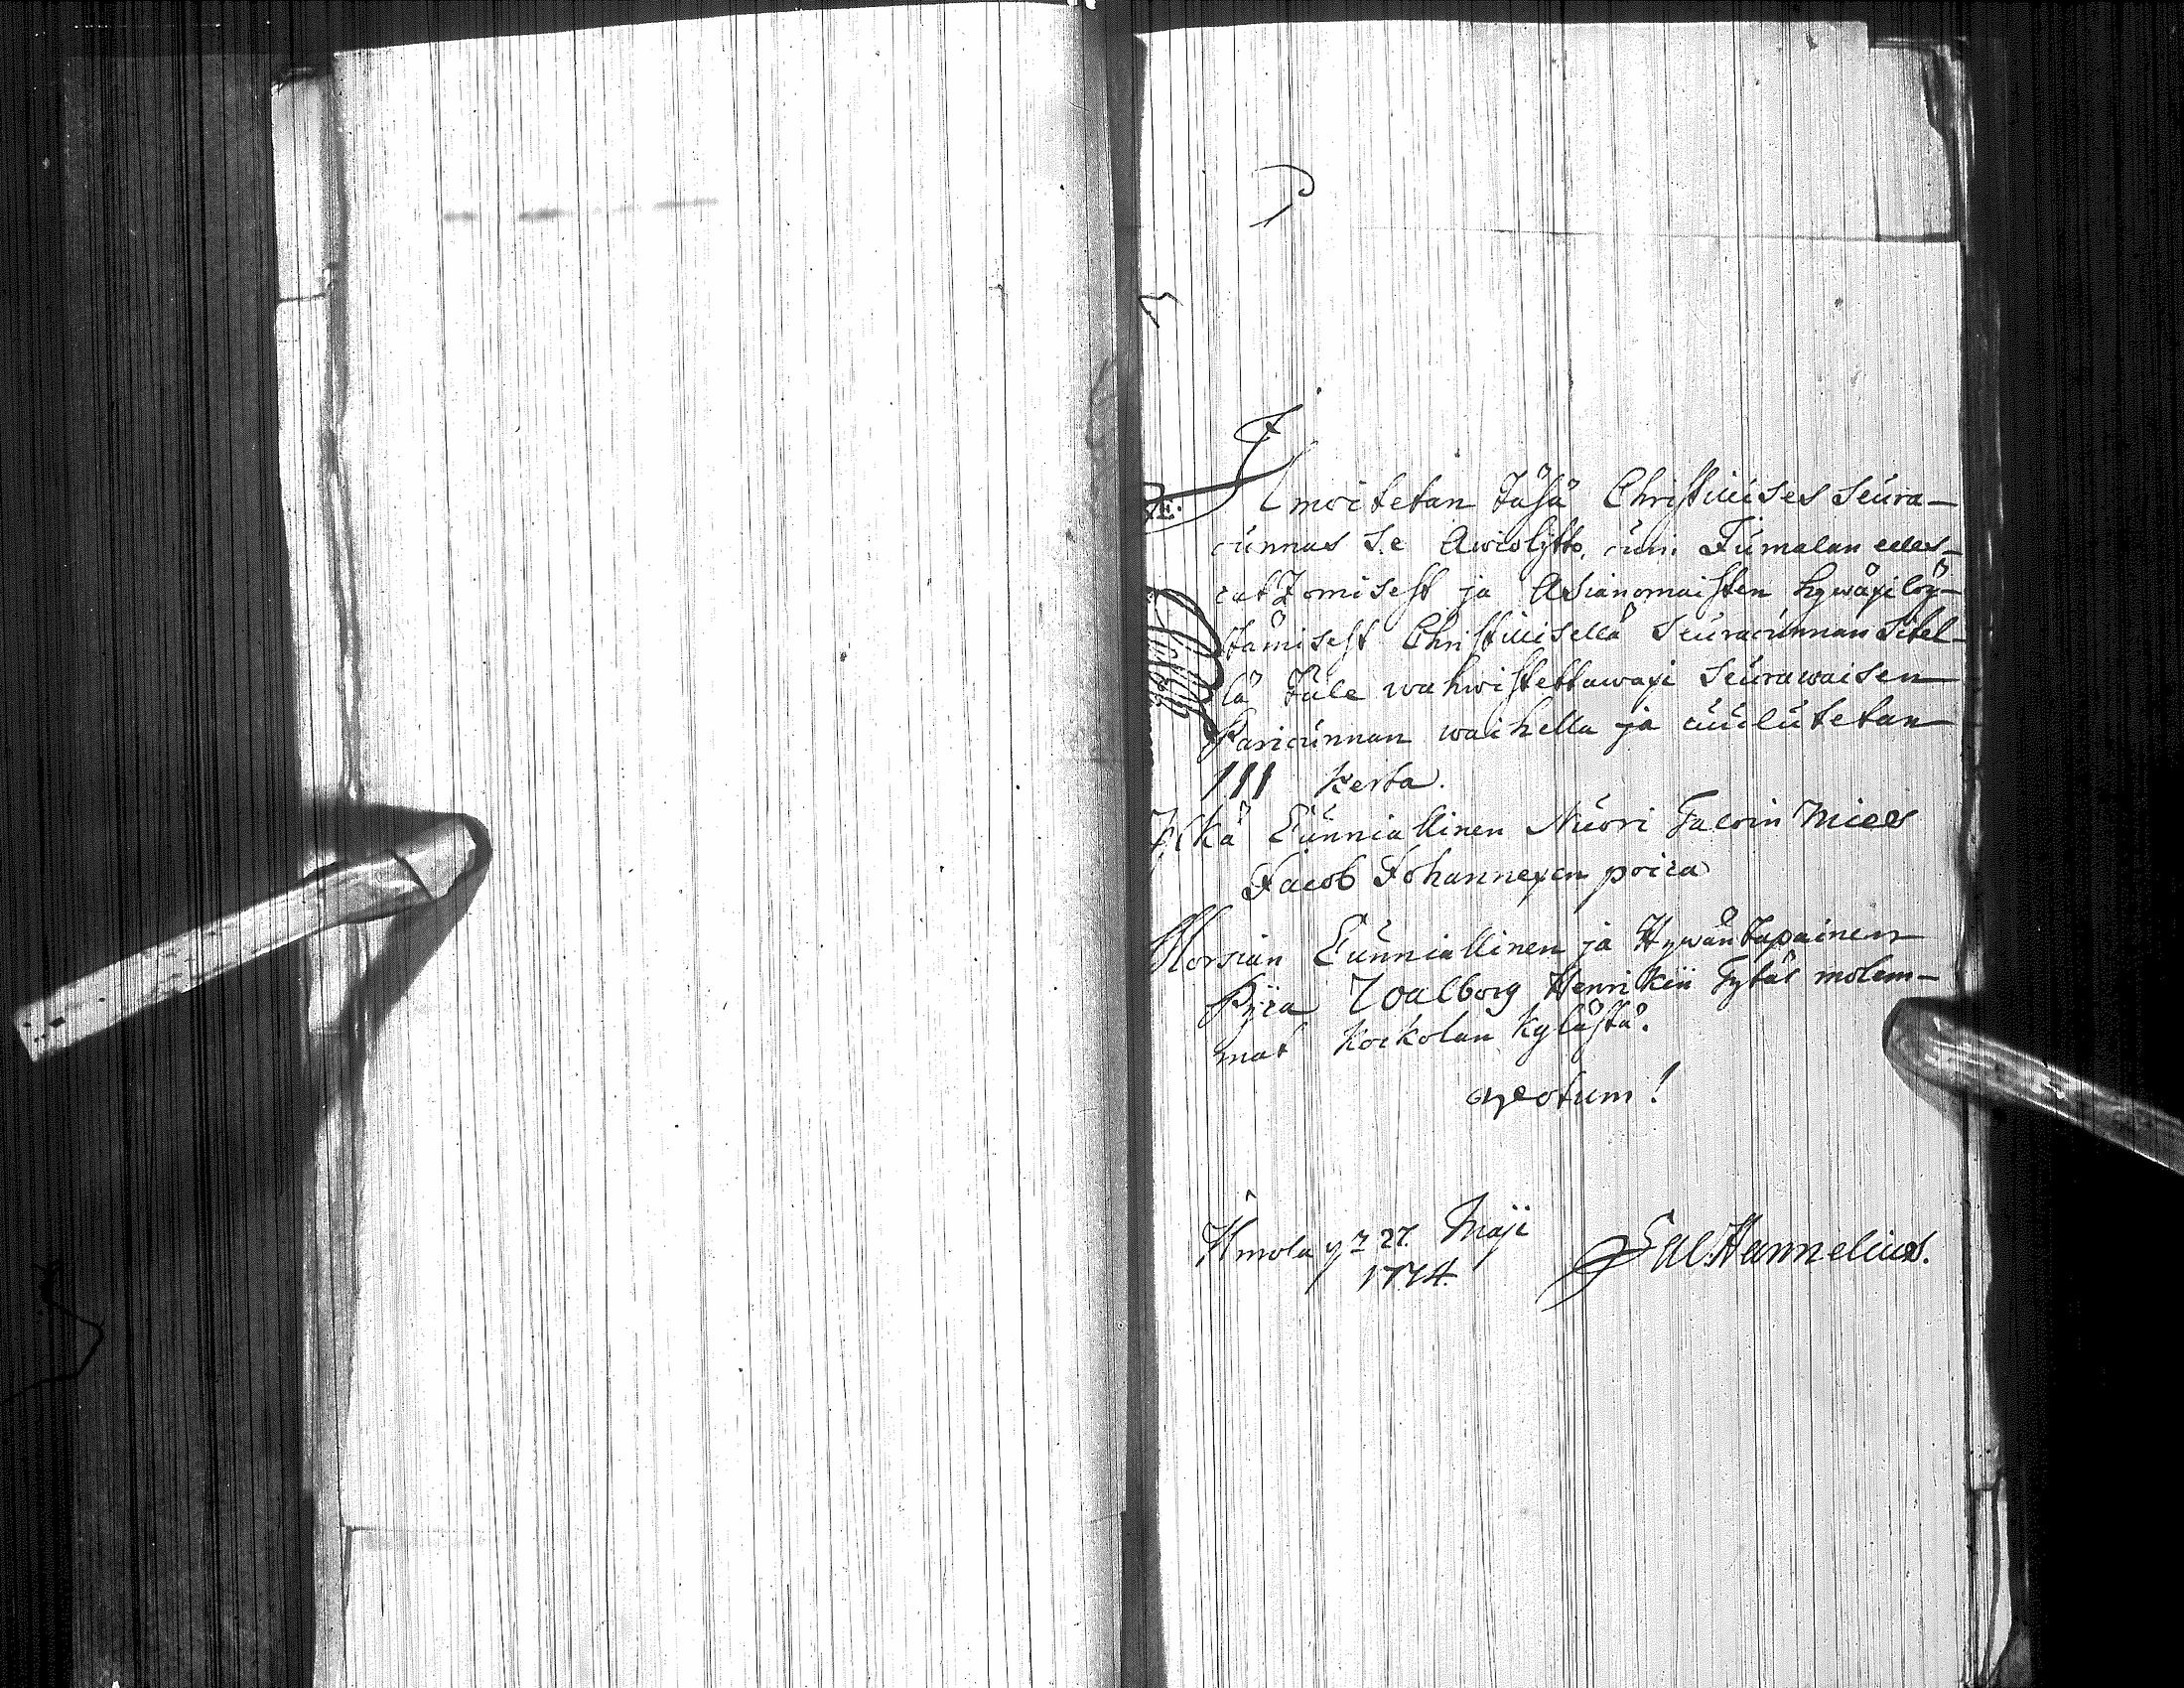 Ilmoitetan täsä Christillises seura-
cunnas se Awioljtto, cuin Jumalan edes-
catzomisest ja Asianomaisten hywäxi löy-
tämisest Christillisellä Seuracunnan Sitel-
lä tule wahwistettawaxi Seurawaisen
Paricunnan waihella ja cuulutetan
III kerta.
Ylkä Cunniallinen Nuori Taloin Mies
Jacob Johannexen poica
Morsian Cunniallinen ja Hywäntapainen
Pijca Walborg Henrikin Tytär molem-
mat Koikolan Kylästä.
qvotum!
Ilmola 27. Maji
1774.
Sal. Hannelius.